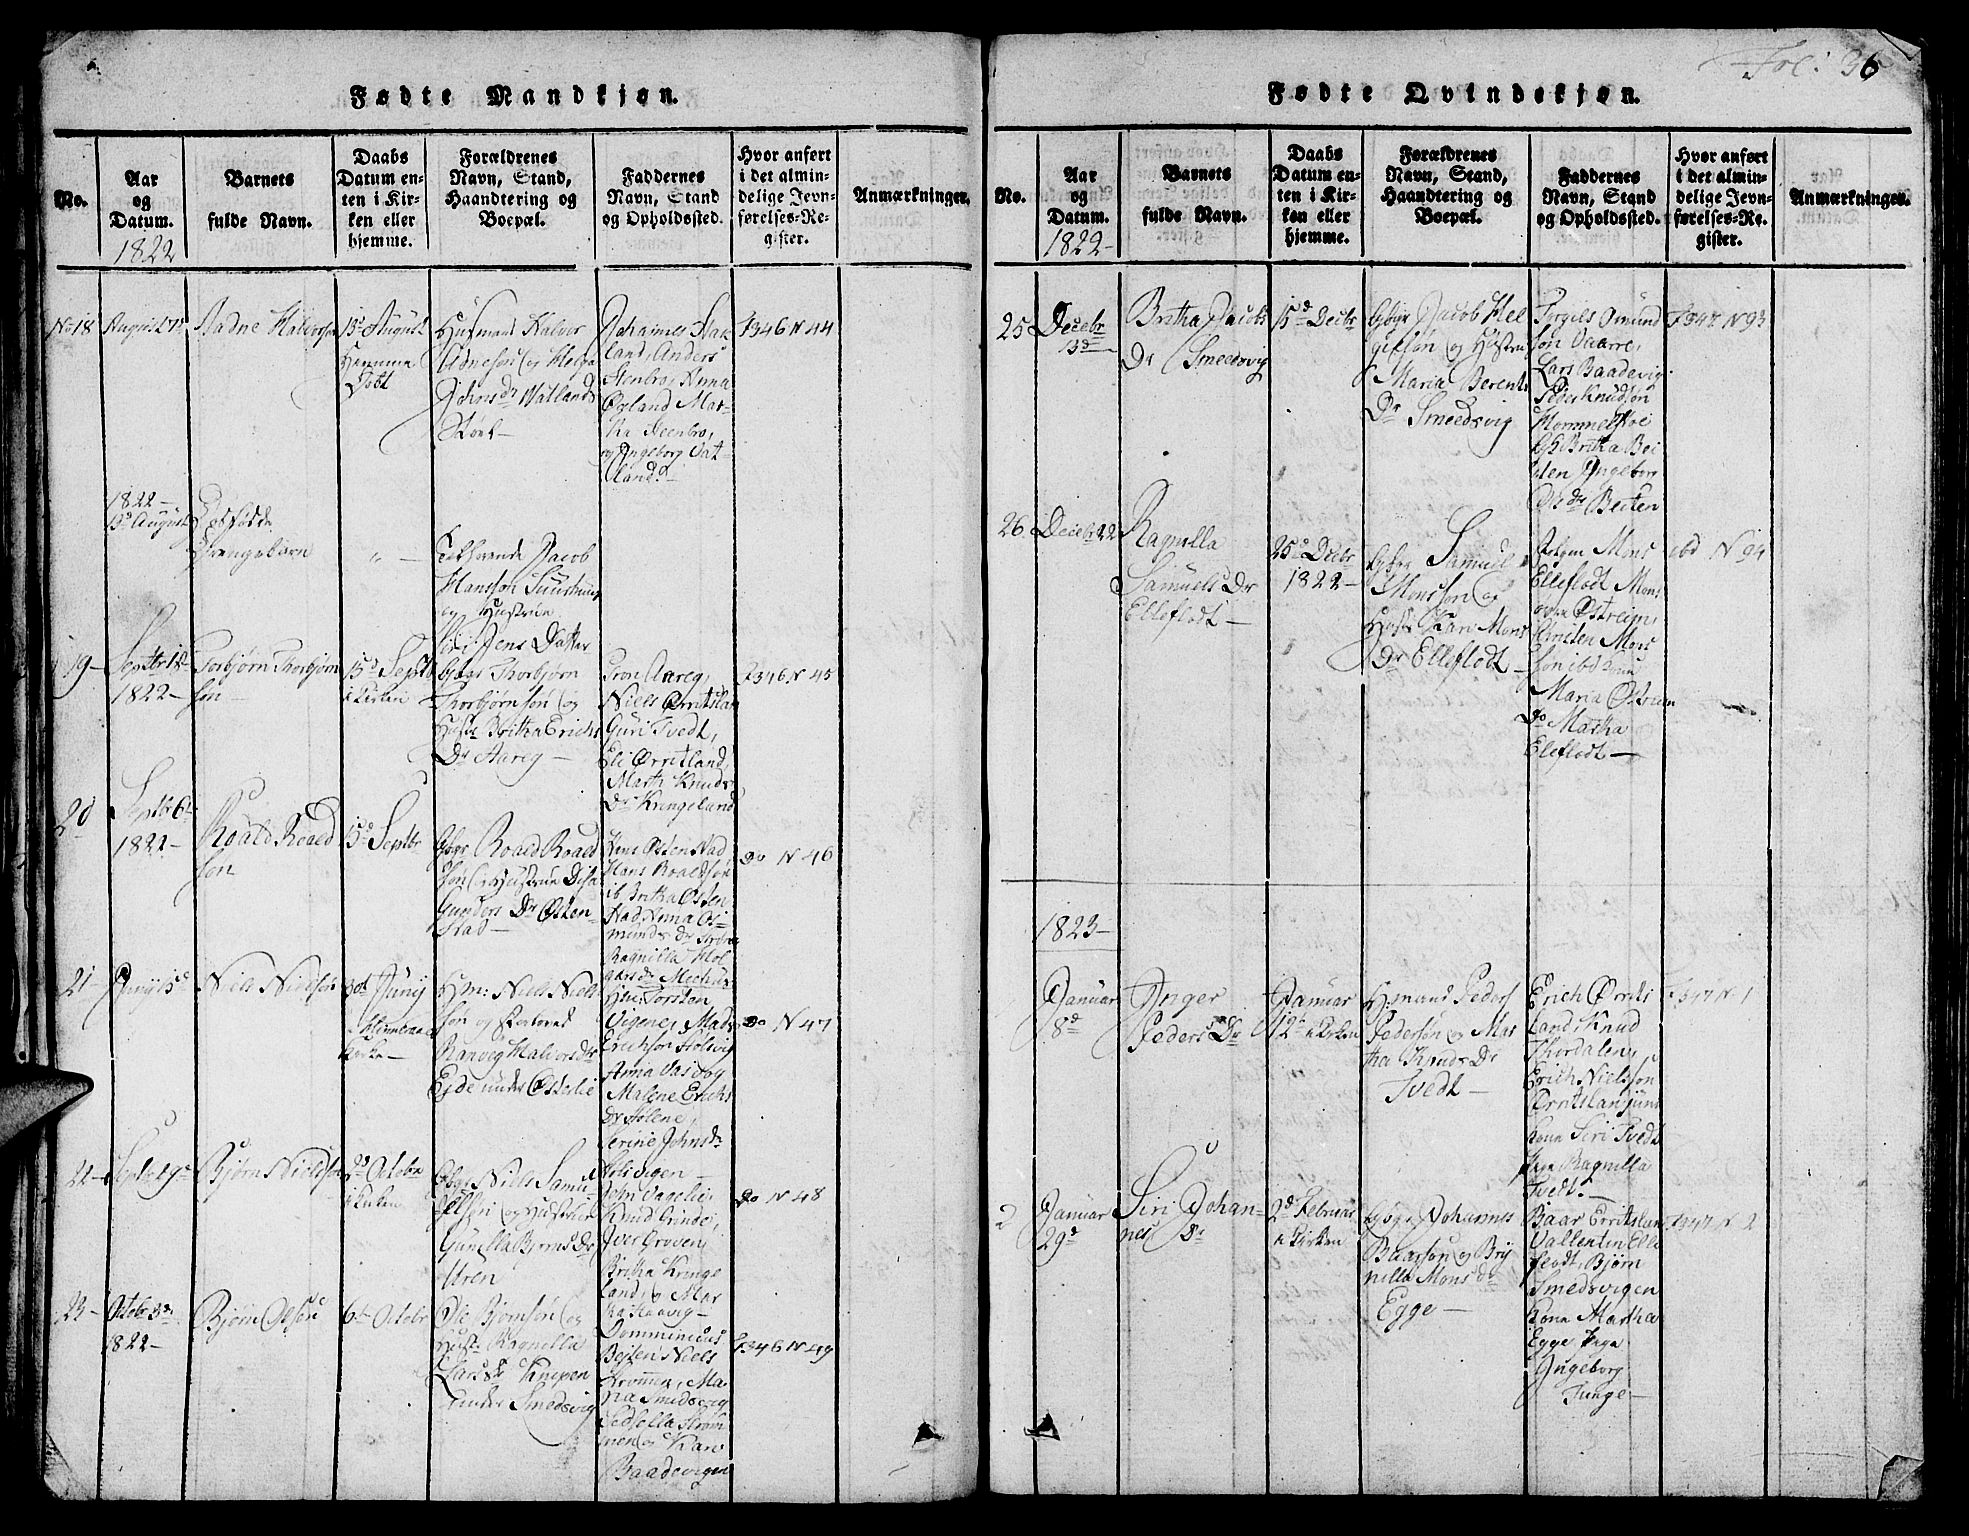 Fol: 36
Fødte Mandkjøn.
No.
Aar
og
Datum.
1822
Barnets
fulde Navn.
Daabs
Datum en-
ten i Kir-
ken eller
hjemme.
Forældrenes
Navn, Stand,
Haandtering og
Boepæl.
Faddernes
Navn, Stand
og Opholdssted.
Hvor anført
i det almin-
delige Jevn-
førelses-Re-
gister.
Anmærkninger.
No 18
August
Aadne Halvorsøn
15d August
Hiemme
Døbt
Huusmand Halvor
Adnesøn og Helga
Johns dr Watland
Støel
Johannes
land, Anders
Stenbro, Anna
Øgland Mar-
tha Steenbro,
og Ingeborg Vat-
land
F346 N 44
1822
13d August
Dødfødde
Drengebørn
" —
Jacob
Hanssøn
og Hustrue
Siri Jens Datter
19
Septbr
1822
Torbjørn Thorbjørn
søn
15d Septb
i Kirken
Gbgr Thorbjørn
Thorbjørnsøn og
Hustr Britha Erichs
Dr Aareg
Tron Aareg,
Niels Ørritsland
Guri Tvedt,
Eli Ørritland,
Marth Knuds
Dr Kringeland
F346 N 45
20
Septbr 6t
1822
Roald Roald
søn
15d Septbr
Gbgr Roald Roald
søn og Hustrue Disa
Gunders Dr Østen-
stad
Østenstad
Hans Roaldsøn
ib Britha Østen
stad, Anna Os-
munds dr
Ragnilla Hol
gers dr
Do N 46
21
Juny 15d
Niels Nielssøn
30t Juny
Kirke
Hm: Niels Niels-
søn og
Ranveg Halvorsdtr
Eide under Østerlie
Hm: Torsten
Vigene, Mads
Erichsøn Holsvig
Anna
Malene Erichs
Dr Holene,
Serine Johns dr
Holsvigen
Do N 47
22
Septbr 19d
Bjørn Nielssøn
23 Octobr
i Kirken
Gbgr Niels Samu
elsøn og Hustrue
Gunilla Bjørns Dr
Uren
John Vagelie,
Knud Grinde,
Iver Groven
Britha Kringe
land, og Mar
tha Haavig
Do N 48
23
Octobr 3d
1822
Bjørn Olsøn
6t Octobr
Ole Bjornsøn og
Hust: Ragnilla
Lars dr Knepen
under Smedsvig
Domminicus
Bejten Niels
Strømmen, Ma-
ria Smedsvig
Sedsella Strøm
men og Kari
Baadsvigen
F346 N 49
Fødte Qvindekjøn.
No.
Aar
og
Datum.
1822
Barnets
fulde Navn.
Daabs
Datum en-
ten i Kir-
ken eller
hjemme.
Forældrenes
Navn, Stand,
Haandtering og
Boepæl.
Faddernes
Navn, Stand,
og Opholdssted.
Hvor anført
i det almin-
delige Jevn-
førelses-Re-
gister.
Anmærkninger.
25
Decebr
13d
Britha Jacobs
Dr Smedsvig
15d Decbr
Gbgr Jacob Hel
gesøn og Hustrue
Maria Berents
Dr Smeedsvig
Torgies Omund
søn Vaarre,
Lars Baadsvig
Peder Knudsøn
Hommelstoe
Gb Britha Bei
ten Ingebor
Ole dr Beiten
F347 N 93
26
Decebr 22
Ragnilla
Samuels Dr
Elleflodt
25d Decbr
1822
Gbgr Samuel
Monssøn og
Hustr Kari Mons
Dr Elleflodt
Mons
Elleflodt Mons
Østreim,
Christen Mons
søn ibd
Maria Østreim
Do Martha
Elleflodt
ibd N 94
1823
Januar
8d
Inger
Peders Dr
Januar
12t i Kirken
Hmand Peder
Pedersøn og Mar
tha Knuds Dr
Tvedt
Erich Ørrits
land, Knud
Thordalen,
Erich Nielssøn
Ørritsland
Kona Siri Tvedt
Piga Ragnilla
Tvedt
F347 N 1
2
Januar
29d
Siri Johan-
nes Dr
2d Februar
i Kirken
Gbgr Johannes
Baarsøn og Bry
nilla Mons dr
Egge
Baar Erritsland
Vallentin Elle
flodt, Bjørn
Smedsvigen
Kona Martha
Egge Piga
Ingeborg
Tunge
F347 N 2